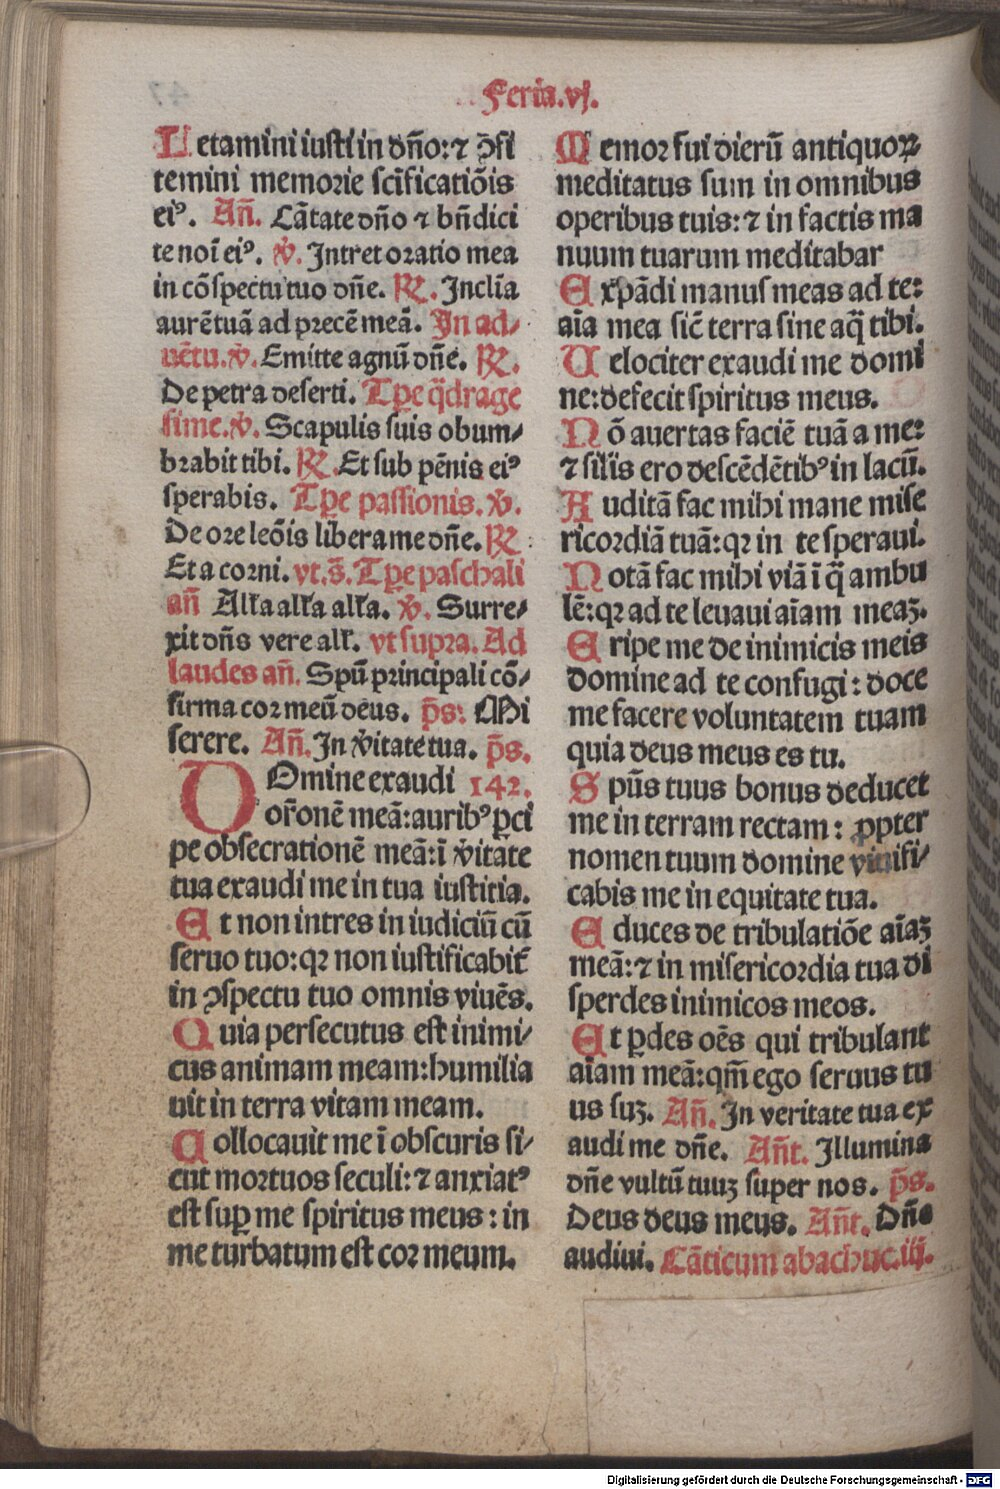 Feria.vj.
Letamini iusti in dño:⁊ ꝯfi
temini memorie scîficatiõis
eiꝰ. Añ. Cãtate dño ⁊ bñdici
te noĩ eiꝰ. ℣. Intret oratio mea
in cõspectu tuo dñe. ℟. Inclĩa
aurẽ tuã ad precẽ meã. In ad⸗
uẽtu. ℣. Emitte agnũ dñe. ℟.
De petra deserti. Tp̃e q̃drage
sime. ℣. Scapulis suis obum⸗
brabit tibi. ℟. Et sub pẽnis eiꝰ
sperabis. Tp̃e passionis. ℣.
De ore leõis libera me dñe. ℟:
Et a corni. vt.s̃. Tp̃e paschali
añ Alľa alľa alľa. ℣. Surre⸗
xit dñs vere alľ. vt supra. Ad
laudes añ. Spũ principali cõ⸗
firma cor meũ deus. p̃s: Mi
serere. Añ. In v̾itate tua. p̃s.
DOmine exaudi 142.
or̃onẽ meã:auribꝰ ꝑci
pe obsecrationẽ meã:ĩ v̾itate
tua exaudi me in tua iustitia.
Et non intres in iudiciũ cũ
seruo tuo:qꝛ non iustificabit̃
in ꝯspectu tuo omnis viuẽs.
Quia persecutus est inimi⸗
cus animam meam:humilia
uit in terra vitam meam.
Collocauit me ĩ obscuris si⸗
cut mortuos seculi:⁊ anxiatꝰ
est suꝑ me spiritus meus: in
me turbatum est cor meum.
Memor fui dierũ antiquoꝝ
meditatus sum in omnibus
operibus tuis:⁊ in factis ma
nuum tuarum meditabar
Expãdi manus meas ad te:
aĩa mea sic̃ terra sine aq̃ tibi.
Uelociter exaudi me domi
ne:defecit spiritus meus.
Nõ auertas faciẽ tuã a me:
⁊ sil̃is ero descẽdẽtibꝰ in lacũ.
Auditã fac mihi mane mise
ricordiã tuã:qꝛ in te speraui.
Notã fac mihi viã ĩ q̃ ambu
lẽ:qꝛ ad te leuaui aĩam meaꝫ.
Eripe me de inimicis meis
domine ad te confugi: doce
me facere voluntatem tuam
quia deus meus es tu.
Spũs tuus bonus deducet
me in terram rectam: ꝓpter
nomen tuum domine viuifi⸗
cabis me in equitate tua.
Educes de tribulatiõe aĩaꝫ
meã:⁊ in misericordia tua di
sperdes inimicos meos.
Et ꝑdes oẽs qui tribulant
aĩam meã:qm̃ ego seruus tu
us suꝫ. Añ. In veritate tua ex
audi me dñe. Añt. Illumina
dñe vultũ tuuꝫ super nos. p̃s.
Deus deus meus. Añt. Dñe
audiui. Cãticum abachuc.iij.
Digitalisierung gefördert durch die Deutsche Forschungsgemeinschaft - DFG